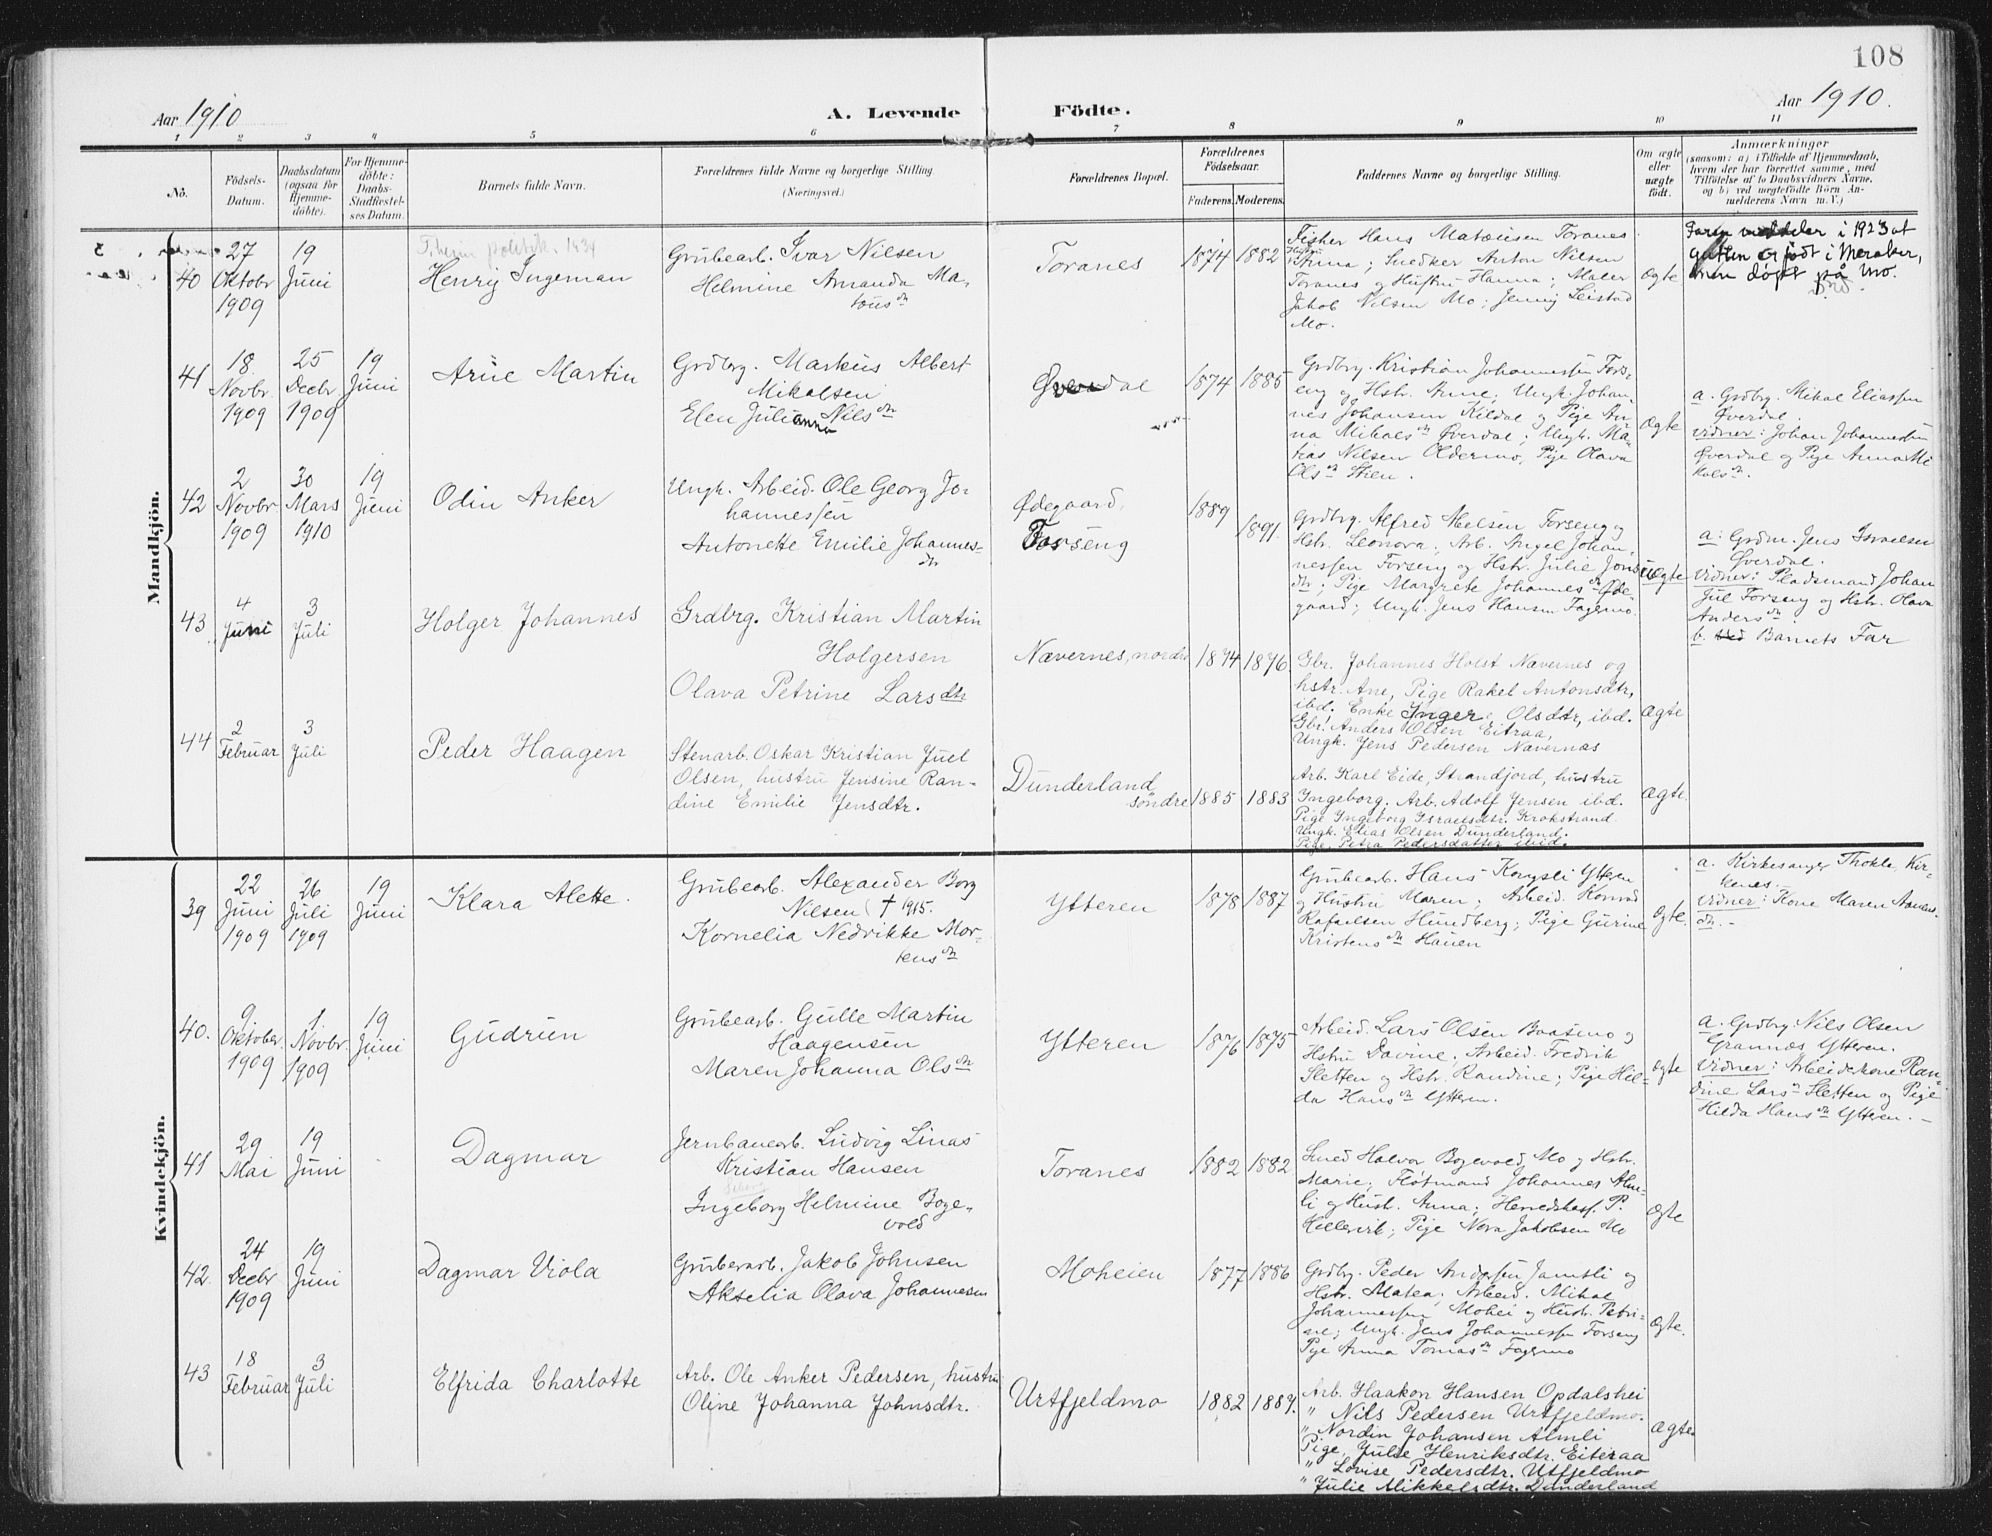 108
Aar 1910
A. Levende Födte.
Aar 1910.
1 2 3 4 5 6 7 8 9 10 11
No.
Födsels-
Datum.
Daabsdatum
(ogsaa for
Hjemme-
döbte).
For Hjemme-
döbte:
Daabs-
Stadfæstel-
ses Datum.
Barnets fulde Navn.
Forældrenes fulde Navne og borgerlige Stilling.
(Næringsvei.)
Forældrenes Bopæl.
Forældrenes
Födselsaar.
Faderens. Moderens.
Faddernes Navne og borgerlige Stilling.
Om ægte
eller
uægte
födt.
Anmærkninger
(saasom: a) i Tilfælde af Hjemmedaab,
hvem der har forrettet samme, med
Tilföielse af to Daabsvidners Navne,
og b) ved uægtefödte Börn An-
melderens Navn m. V.)
Mandkjön.
40
27
Oktobr
1909
19
Juni
Henrij Ingeman
Grubearb. Ivar Nilsen
Helmine Amanda Ma-
tous dtr
Toranes
1874 1882
Fisker Hans Mateusen Toranes
Hustru Anna; Snedker Anton Nilsen
Toranes og Hustru Hanna; Maler
Jakob Nilsen Mo; Jenny Leistad
Mo.
Ægte
Faren meddeler i 1923 at
gutten er født i Meraker,
men døpt på Mo.
41
18
Novbr
1909
25
Decbr
1909
19
Juni
Arne Martin
Grdbrg. Markus Albert
Mikalsen
Elen Julianna Nilsdtr
Øverdal
1874 1885
Grdbrg. Kristian Johannessen Fors-
eng og Hstr. Anne; Ungk. Johan-
nes Johansen Kildal og Pige An-
na Mikalsdtr Øverdal; Ungk. Ma-
tias Nilsen Oldermo, Pige Olava
Olsdtr Stien.
Ægte
a. Grdbrg. Mikal Eliassen
Øverdal.
vidner: Johan Johannessen
Øverdal og Pige Anna Mi-
kalsdtr.
42
2
Novbr
1909
30
Mars
1910
19
Juni
Odin Anker
Ungk. Arbeid. Ole Georg Jo-
hannessen
Antonette Emilie Johannes-
dtr
Ødegaard,
Forseng
1889
1891.
Grdbrg. Alfred Nielsen Forseng og
Hstr. Leonora; Arb. Angel Johan-
nessen Forseng og Hstr. Julie Jons-
dtr; Pige Margrete Johannesdtr Øde-
gaard; Ungk. Jens Hansen Fagermo.
Uægte
a: Grdm. Jens Israelsen
Øverdal.
vidner: Pladsmand Johan
Jul Forseng og Hstr. Olava
Andersdtr
b. Barnets Far
43
4
Juni
3
Juli
Holger Johannes
Grdbrg. Kristian Martin
Holgersen
Olava Petrine Larsdtr
Nævernes, nordre
1874 1876
Gbr. Johannes Holst Nævernes og
hstr. Ane, Pige Rakel Antonsdtr,
ibd. Enke Inger Olsdtr, ibd.
Gbr. Anders Olsen Eitraa,
Ungk. Jens Pedersen Nævernæs
Ægte
44
2
Februar
3
Juli
Peder Haagen
Stenarb. Oskar Kristian Juel
Olsen, hustru Jensine Ran-
dine Emilie Jensdtr.
Dunderland
søndre
1885 1883
Arb. Karl Eide, Strandjord, hustru
Ingeborg. Arb. Adolf Jensen ibd.
Pige Ingeborg Israelsdtr. Krokstrand
Ungk. Elias Olsen Dunderland.
Pige, Petra Pedersdatter ibid.
Ægte.
Kvindekjön.
39
22
Juni
1909
26
Juli
1909
19
Juni
Klara Alette.
Grubearb. Alexander Borg
Nilsen († 1915.
Kornelia Nedrikke Mor-
tensdtr
Ytteren
1878 1887
Grubearb. Hans Korgsli Ytteren
og Hustru Maren; Arbeid. Konrad
Rafaelsen Hundberg; Pige Gurine
Kristensdtr Hauen
Ægte.
a. Kirkesanger Thokle, Kir-
kenes.
vidner: Kone Maren
dtr.
40.
9.
Oktober
1909
1.
Novbr.
1909
19
Juni
Gudrun
Grubearb. Gulle Martin
Haagensen
Maren Johanna Olsdtr
Ytteren
1876 1875
Arbeid. Lars Olsen Baasmo og
Hstru Davine; Arbeid. Fredrik
Sletten og Hstr. Randine; Pige Hil-
da Hansdtr Ytteren.
Ægte
a. Grdbrg: Nils Olsen
Grannæs Ytteren.
Vidner: Arbeiderkone Ran-
dine Larsdtr Sletten og Pige
Hilda Hansdtr Ytteren.
41
29
Mai
19
Juni
Dagmar
Jernbanearb. Ludvig Linas
Kristian Hansen
Ingeborg Helmine Boge-
vold
Toranes
1882 1882
Smed Halvor Bogevold, Mo og Hstr.
Marie; Fløtmand Johannes Alm-
li og Hustr. Anna; P.
Hellevik; Pige Nora Jakobsen Mo
Ægte
42.
24
Decbr
1909
19
Juni
Dagmar Viola
Grubearb. Jakob Johnsen
Akselia Olava Johannesen
Moheien
1877 1886
Grdbrg. Peder Andersen Jamtli og
Hstr. Matea; Arbeid. Mikal
Johannessen Mohei og Hustr. Petri-
ne; Ungk. Jens Johannessen Forseng
Pige Anna Tomasdtr Fagermo
Ægte.
43
18
Februar
3
Juli
Elfrida Charlotte
Arb. Ole Anker Pedersen, hustru
Oline Johanna Johnsdtr.
Urtfjeldmo
1882 1889.
Arb. Haakon Hansen Opdalshei
" Nils Pedersen Urtfjeldmo.
" Nordin Johansen Almli
Pige, Julie Henriksdtr. Eiteraa
" Lovise Pedersdtr. Urtfjeldmo
" Julie Mikkelsdtr. Dunderland
Ægte